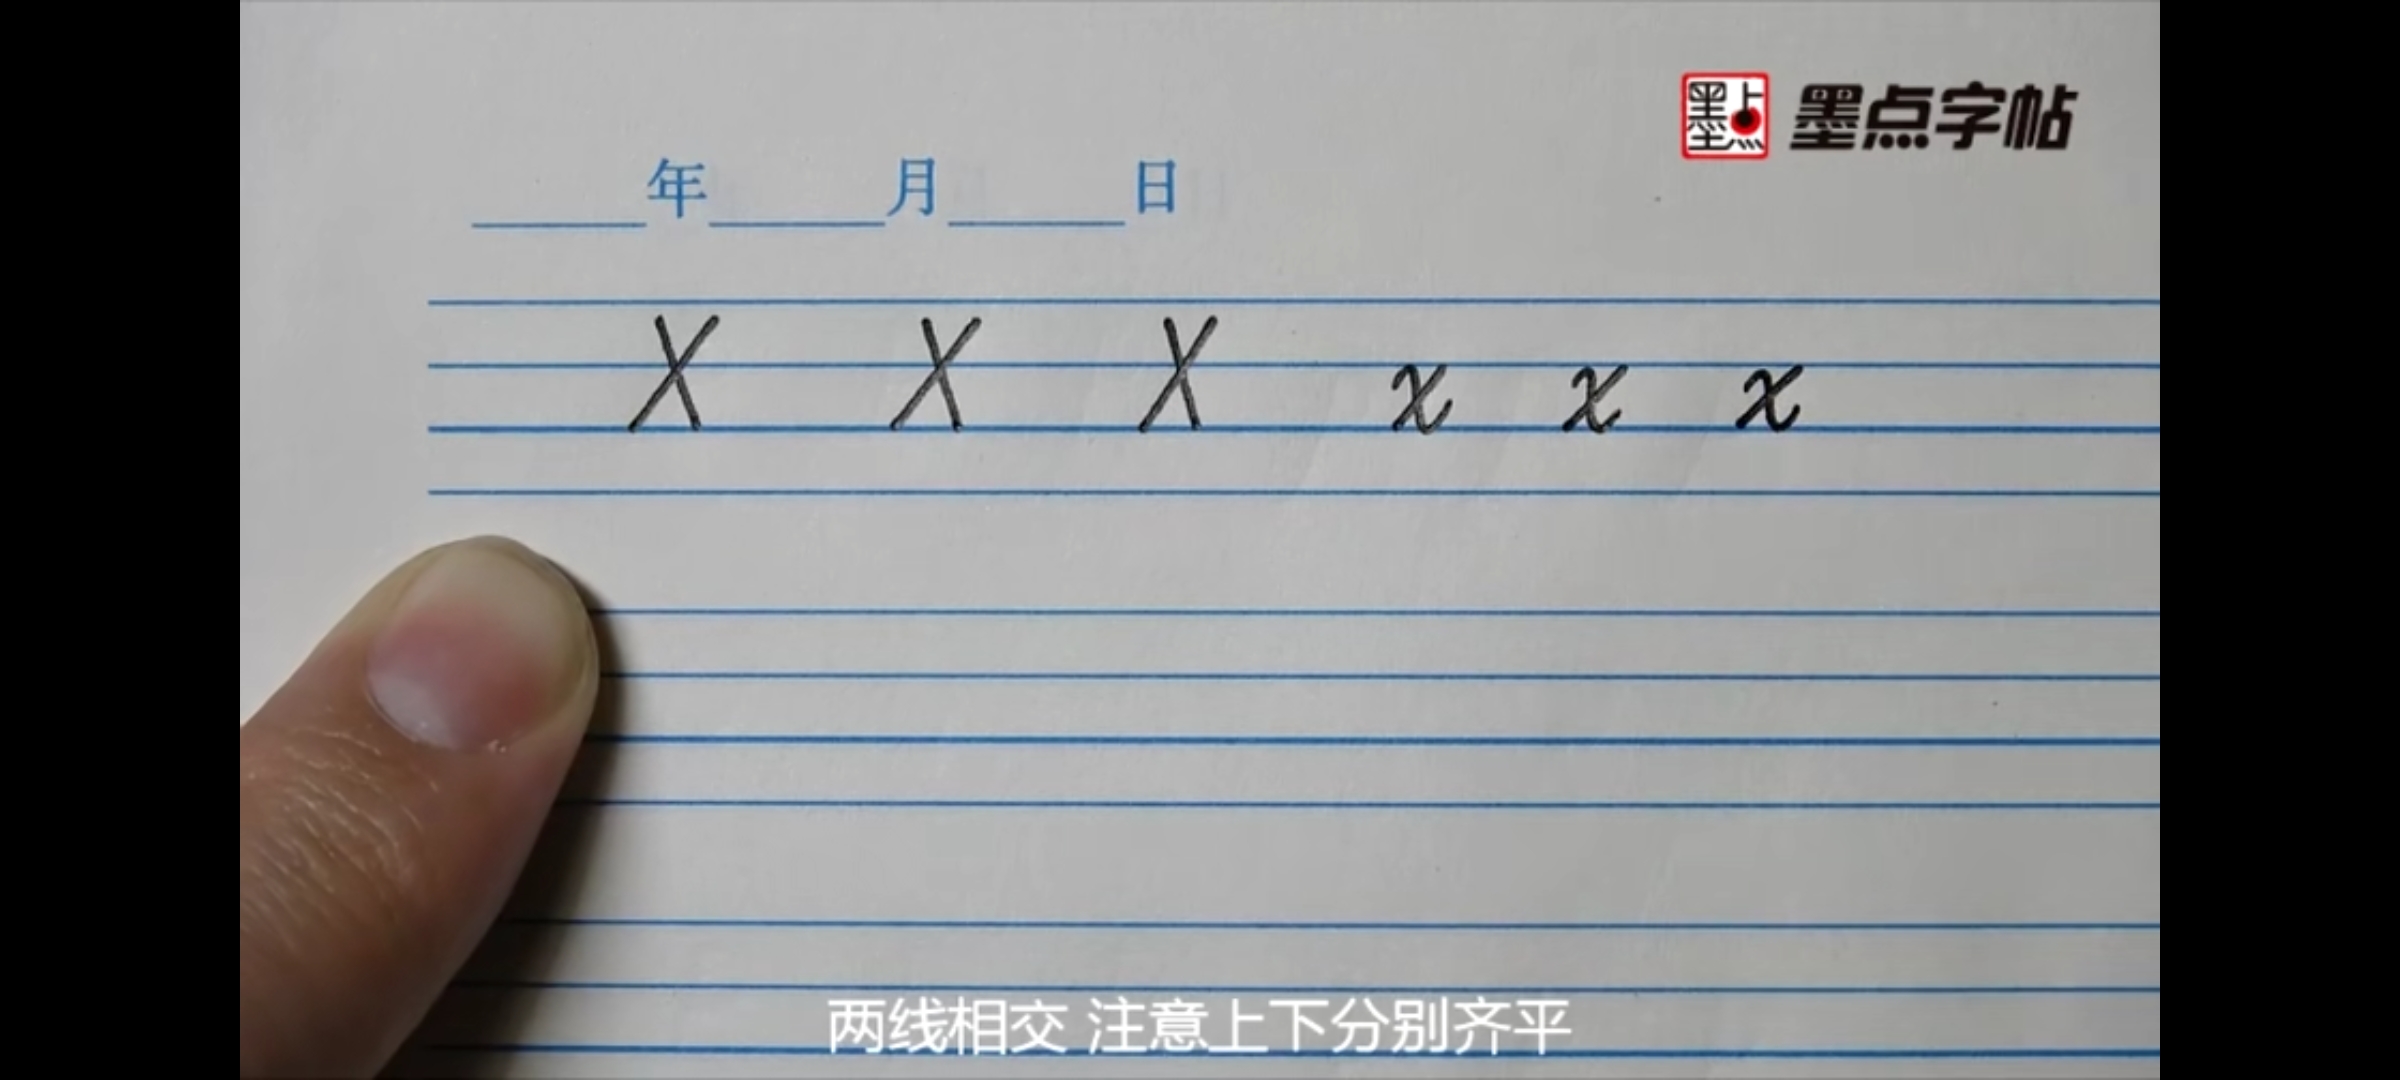 墨点 墨点字帖
年 月 日
X X X x x x
两线相交 注意上下分别齐平